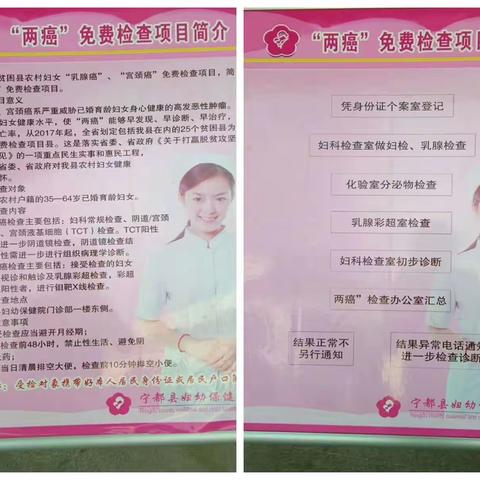 “两癌”免费检查项目简介
贫困县农村妇女“乳腺癌”、“宫颈癌”免费检查项目，简
”免费检查项目。
目意义
、宫颈癌系严重威胁已婚育龄妇女身心健康的高发恶性肿瘤。
妇女健康水平，使“两癌”能够早发现、早诊断、早治疗，
亡率，从2017年起，全省划定包括我县在内的25个贫困县为
费检查项目县。这是落实省委、省政府《关于打赢脱贫攻坚
见》的一项重点民生实事和惠民工程，
省委、省政府对我县农村妇女健康
怀。
查对象
农村户籍的35—64岁已婚育龄妇女。
查内容
癌检查主要包括：妇科常规检查、阴道/宫颈
、宫颈液基细胞（TCT）检查。TCT阳性
进一步阴道镜检查，阴道镜检查结
性需进一步进行组织病理学诊断。
癌检查主要包括：接受检查的妇女
视诊和触诊及乳腺彩超检查，彩超
阳性者，进行钼靶X线检查。
查地点
妇幼保健院门诊部一楼东侧。
意事项
受检查应当避开月经期；
检查前48小时，禁止性生活、避免阴
上药；
当日清晨排空大便，检查前10分钟排空小便。
：受检对象携带好本人居民身份证或居民户口簿
宁都县妇幼保健
“两癌”免费检查项目
凭身份证个案室登记
妇科检查室做妇检、乳腺检查
化验室分泌物检查
乳腺彩超室检查
妇科检查室初步诊断
两癌”检查办公室汇总
结果正常不
另行通知
结果异常电话通知
进一步检查诊断
宁都县妇幼保